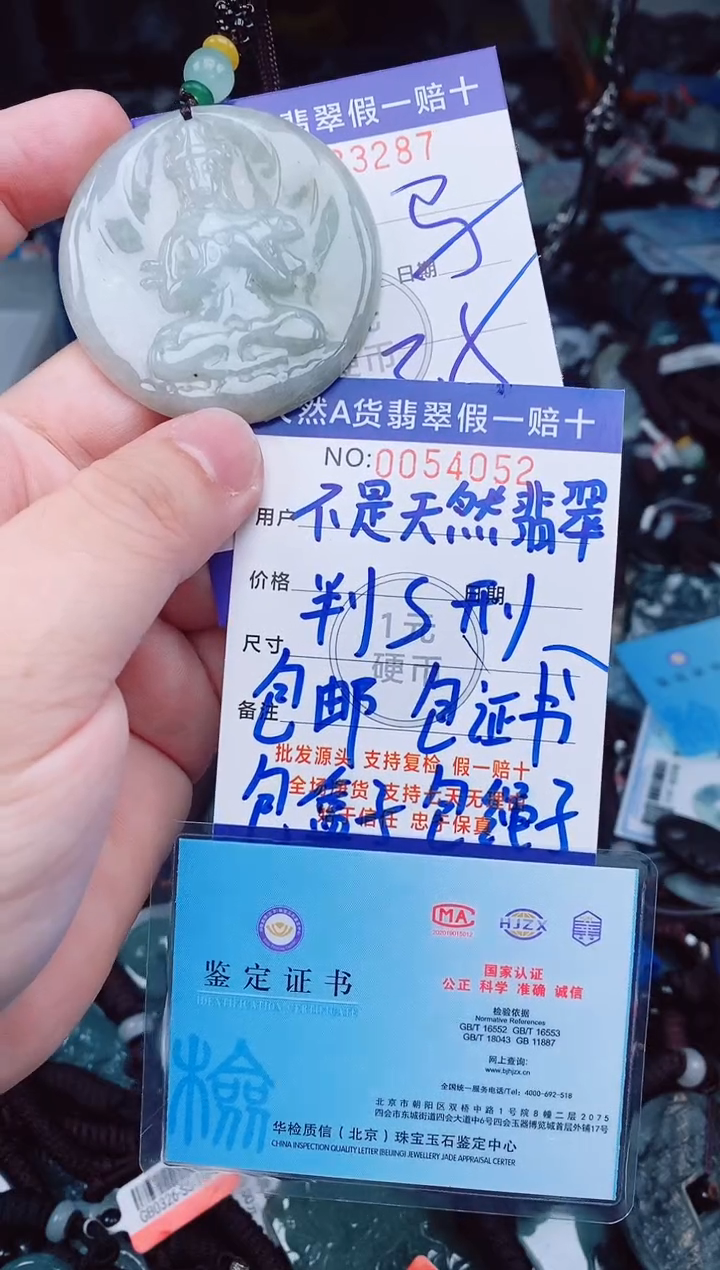 翡翠假一赔十
33287
日期
然A货翡翠假一赔十
NO:0054052
用户 不是天然翡翠
价格 判S刑
日期
1元
硬币
尺寸
备注 包邮 包证书
批发源头 支持复检 假一赔十
包盒子包绳子
忠于保真
鉴定证书
IDENTIFICATION CERTIFICATE
MA
HJZX
国家认证
公正 科学 准确 诚信
检验依据
Normative References
GB/T 16552 GB/T 16553
GB/T 18043 GB 11887
网上查询:
www.bjhjzx.cn
全国统一服务电话/Tel: 4000-692-518
北京市朝阳区双桥中路1号院8幢二层2075
四会市东城街道四会大道中6号四会玉器博览城首层外铺17号
检
华检质信（北京）珠宝玉石鉴定中心
CHINA INSPECTION QUALITY LETTER (BEIJING) JEWELLERY JADE APPRAISAL CERTER